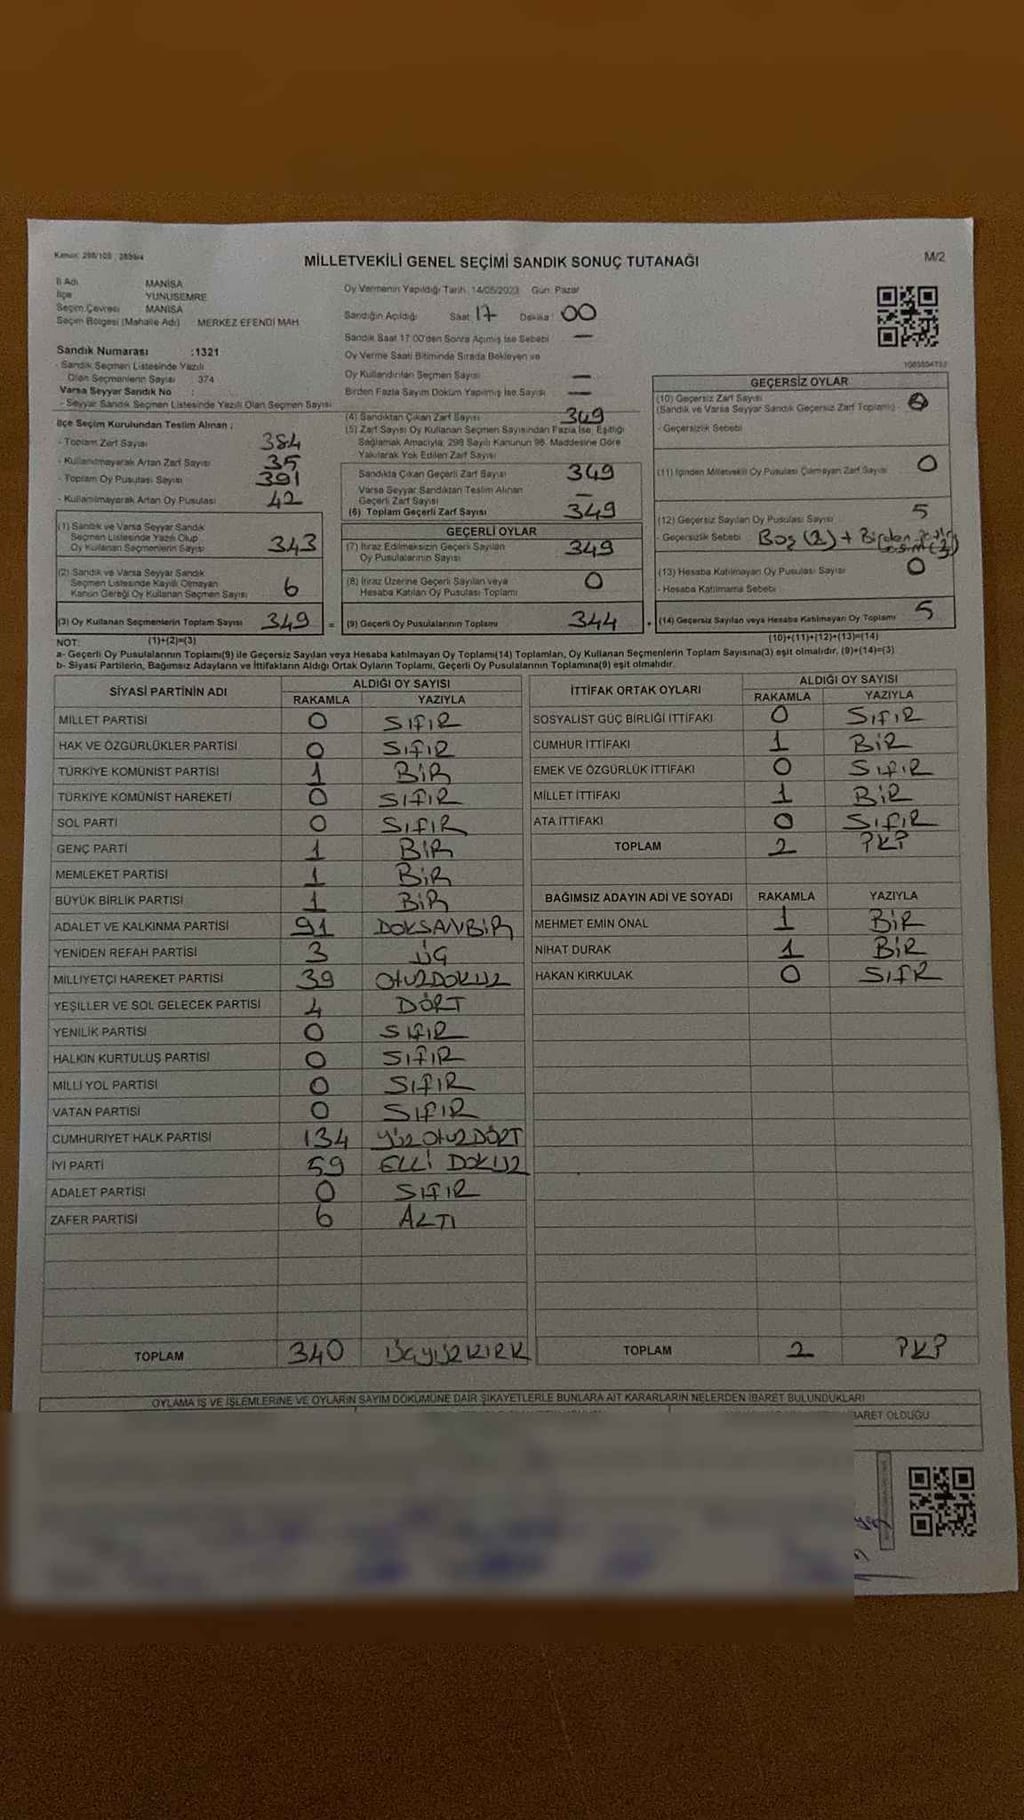 Kanun: 298/105 , 2839/4
MİLLETVEKİLİ GENEL SEÇİMİ SANDIK SONUÇ TUTANAĞI
M/2
İl Adı MANİSA
İlçe YUNUSEMRE
Seçim Çevresi MANİSA
Seçim Bölgesi (Mahalle Adı) MERKEZ EFENDİ MAH
Sandık Numarası :1321
- Sandık Seçmen Listesinde Yazılı
Olan Seçmenlerin Sayısı 374
Varsa Seyyar Sandık No :
- Seyyar Sandık Seçmen Listesinde Yazılı Olan Seçmen Sayısı
İlçe Seçim Kurulundan Teslim Alınan ;
- Toplam Zarf Sayısı 384
- Kullanılmayarak Artan Zarf Sayısı 35
- Toplam Oy Pusulası Sayısı 391
- Kullanılmayarak Artan Oy Pusulası 42
(1) Sandık ve Varsa Seyyar Sandık
Seçmen Listesinde Yazılı Olup
Oy Kullanan Seçmenlerin Sayısı 343
(2) Sandık ve Varsa Seyyar Sandık
Seçmen Listesinde Kayıtlı Olmayan
Kanun Gereği Oy Kullanan Seçmen Sayısı 6
(3) Oy Kullanan Seçmenlerin Toplam Sayısı 349 =
Oy Vermenin Yapıldığı Tarih: 14/05/2023 Gün: Pazar
Sandığın Açıldığı Saat: 17 Dakika: 00
Sandık Saat 17:00'den Sonra Açılmış İse Sebebi —
Oy Verme Saati Bitiminde Sırada Bekleyen ve
Oy Kullandırılan Seçmen Sayısı —
Birden Fazla Sayım Döküm Yapılmış İse Sayısı —
(4) Sandıktan Çıkan Zarf Sayısı 349
(5) Zarf Sayısı Oy Kullanan Seçmen Sayısından Fazla İse, Eşitliği
Sağlamak Amacıyla, 298 Sayılı Kanunun 98. Maddesine Göre
Yakılarak Yok Edilen Zarf Sayısı
Sandıkta Çıkan Geçerli Zarf Sayısı 349
Varsa Seyyar Sandıktan Teslim Alınan
Geçerli Zarf Sayısı —
(6) Toplam Geçerli Zarf Sayısı 349
GEÇERLİ OYLAR
(7) İtiraz Edilmeksizin Geçerli Sayılan
Oy Pusulalarının Sayısı 349
(8) İtiraz Üzerine Geçerli Sayılan veya
Hesaba Katılan Oy Pusulası Toplamı 0
(9) Geçerli Oy Pusulalarının Toplamı 344
GEÇERSİZ OYLAR
(10) Geçersiz Zarf Sayısı
(Sandık ve Varsa Seyyar Sandık Geçersiz Zarf Toplamı) 0
- Geçersizlik Sebebi
(11) İçinden Milletvekili Oy Pusulası Çıkmayan Zarf Sayısı 0
(12) Geçersiz Sayılan Oy Pusulası Sayısı 5
- Geçersizlik Sebebi Boş (2) +
(13) Hesaba Katılmayan Oy Pusulası Sayısı 0
- Hesaba Katılmama Sebebi
(14) Geçersiz Sayılan veya Hesaba Katılmayan Oy Toplamı 5
NOT: (1)+(2)=(3) (10)+(11)+(12)+(13)=(14)
a- Geçerli Oy Pusulasının Toplamı(9) ile Geçersiz Sayılan veya Hesaba katılmayan Oy Toplamı(14) Toplamları, Oy Kullanan Seçmenlerin Toplam Sayısına(3) eşit olmalıdır. (9)+(14)=(3)
b- Siyasi Partilerin, Bağımsız Adayların ve İttifakların Aldığı Ortak Oyların Toplamı, Geçerli Oy Pusulalarının Toplamına(9) eşit olmalıdır.
SİYASİ PARTİNİN ADI ALDIĞI OY SAYISI
RAKAMLA YAZIYLA
MİLLET PARTİSİ 0 SIFIR
HAK VE ÖZGÜRLÜKLER PARTİSİ 0 SIFIR
TÜRKİYE KOMÜNİST PARTİSİ 1 BİR
TÜRKİYE KOMÜNİST HAREKETİ 0 SIFIR
SOL PARTİ 0 SIFIR
GENÇ PARTİ 1 BİR
MEMLEKET PARTİSİ 1 BİR
BÜYÜK BİRLİK PARTİSİ 1 BİR
ADALET VE KALKINMA PARTİSİ 91 DOKSANBİR
YENİDEN REFAH PARTİSİ 3 ÜÇ
MİLLİYETÇİ HAREKET PARTİSİ 39 OTUZDOKUZ
YEŞİLLER VE SOL GELECEK PARTİSİ 4 DÖRT
YENİLİK PARTİSİ 0 SIFIR
HALKIN KURTULUŞ PARTİSİ 0 SIFIR
MİLLİ YOL PARTİSİ 0 SIFIR
VATAN PARTİSİ 0 SIFIR
CUMHURİYET HALK PARTİSİ 134 YÜZ OTUZ DÖRT
İYİ PARTİ 59 ELLİ DOKUZ
ADALET PARTİSİ 0 SIFIR
ZAFER PARTİSİ 6 ALTI
TOPLAM 340 ÜÇYÜZKIRK
İTTİFAK ORTAK OYLARI ALDIĞI OY SAYISI
RAKAMLA YAZIYLA
SOSYALİST GÜÇ BİRLİĞİ İTTİFAKI 0 SIFIR
CUMHUR İTTİFAKI 1 BİR
EMEK VE ÖZGÜRLÜK İTTİFAKI 0 SIFIR
MİLLET İTTİFAKI 1 BİR
ATA İTTİFAKI 0 SIFIR
TOPLAM 2 İKİ
BAĞIMSIZ ADAYIN ADI VE SOYADI RAKAMLA YAZIYLA
MEHMET EMİN ÖNAL 1 BİR
NİHAT DURAK 1 BİR
HAKAN KIRKULAK 0 SIFIR
TOPLAM 2 İKİ
OYLAMA İŞ VE İŞLEMLERİNE VE OYLARIN SAYIM DÖKÜMÜNE DAİR ŞİKAYETLERLE BUNLARA AİT KARARLARIN NELERDEN İBARET BULUNDUKLARI
İBARET OLDUĞU